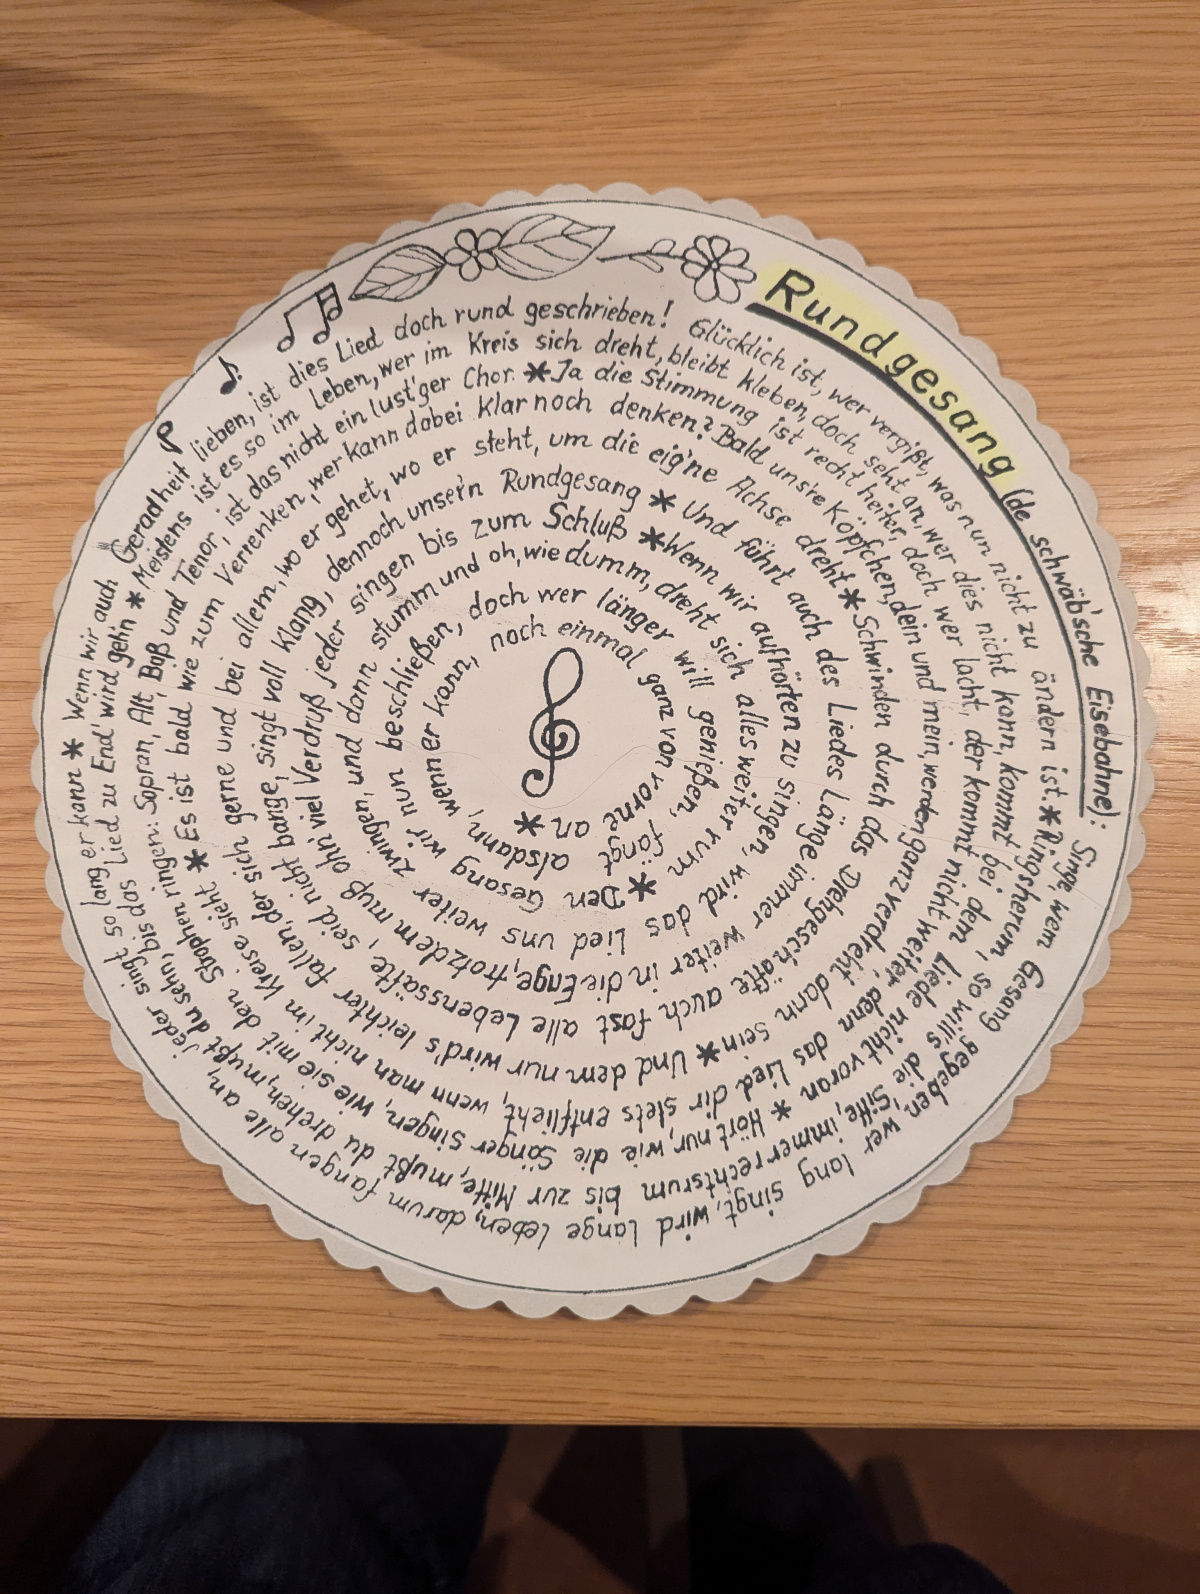 Rundgesang (de schwäb'sche Eisebahne):
Singe, wem Gesang gegeben, wer lang singt, wird lange leben, darum fangen alle an, jeder singt so lang er kann *
Wenn wir auch Geradheit lieben, ist dies Lied doch rund geschrieben! Glücklich ist, wer vergißt, was nun nicht zu ändern ist. *
Ringsherum, so will's die Sitte, immer rechtsrum bis zur Mitte, mußt du drehen, mußt du sehn, bis das Lied zu End' wird geh'n *
Meistens ist es so im Leben, wer im Kreis sich dreht, bleibt kleben, doch seht an, wer dies nicht kann, kommt bei dem Liede nicht voran *
Hört nur, wie die Sänger singen, wie sie mit den Strophen ringen: Sopran, Alt, Baß und Tenor, ist das nicht ein lust'ger Chor. *
Ja die Stimmung ist recht heiter, doch wer lacht, der kommt nicht weiter, denn das Lied dir stets entflieht, wenn man nicht im Kreise sieht *
Es ist bald wie zum Verrenken, wer kann dabei klar noch denken? Bald uns're Köpfchen, dein und mein, werden ganz verdreht dann sein *
Und dem nur wird's leichter fallen, der sich gerne und bei allem, wo er gehet, wo er steht, um die eig'ne Achse dreht *
Schwinden durch das Drehgeschäfte auch fast alle Lebenssäfte, seid nicht bange, singt voll Klang, dennoch unser'n Rundgesang *
Und führt auch des Liedes Länge immer weiter in die Enge, trotzdem muß ohn' viel Verdruß jeder singen bis zum Schluß *
Wenn wir aufhörten zu singen, wird das Lied uns weiter zwingen, und dann stumm und oh, wie dumm, dreht sich alles weiter rum *
Den Gesang wir nun beschließen, doch wer länger will genießen, fängt alsdann, wenn er kann, noch einmal ganz von vorne an *